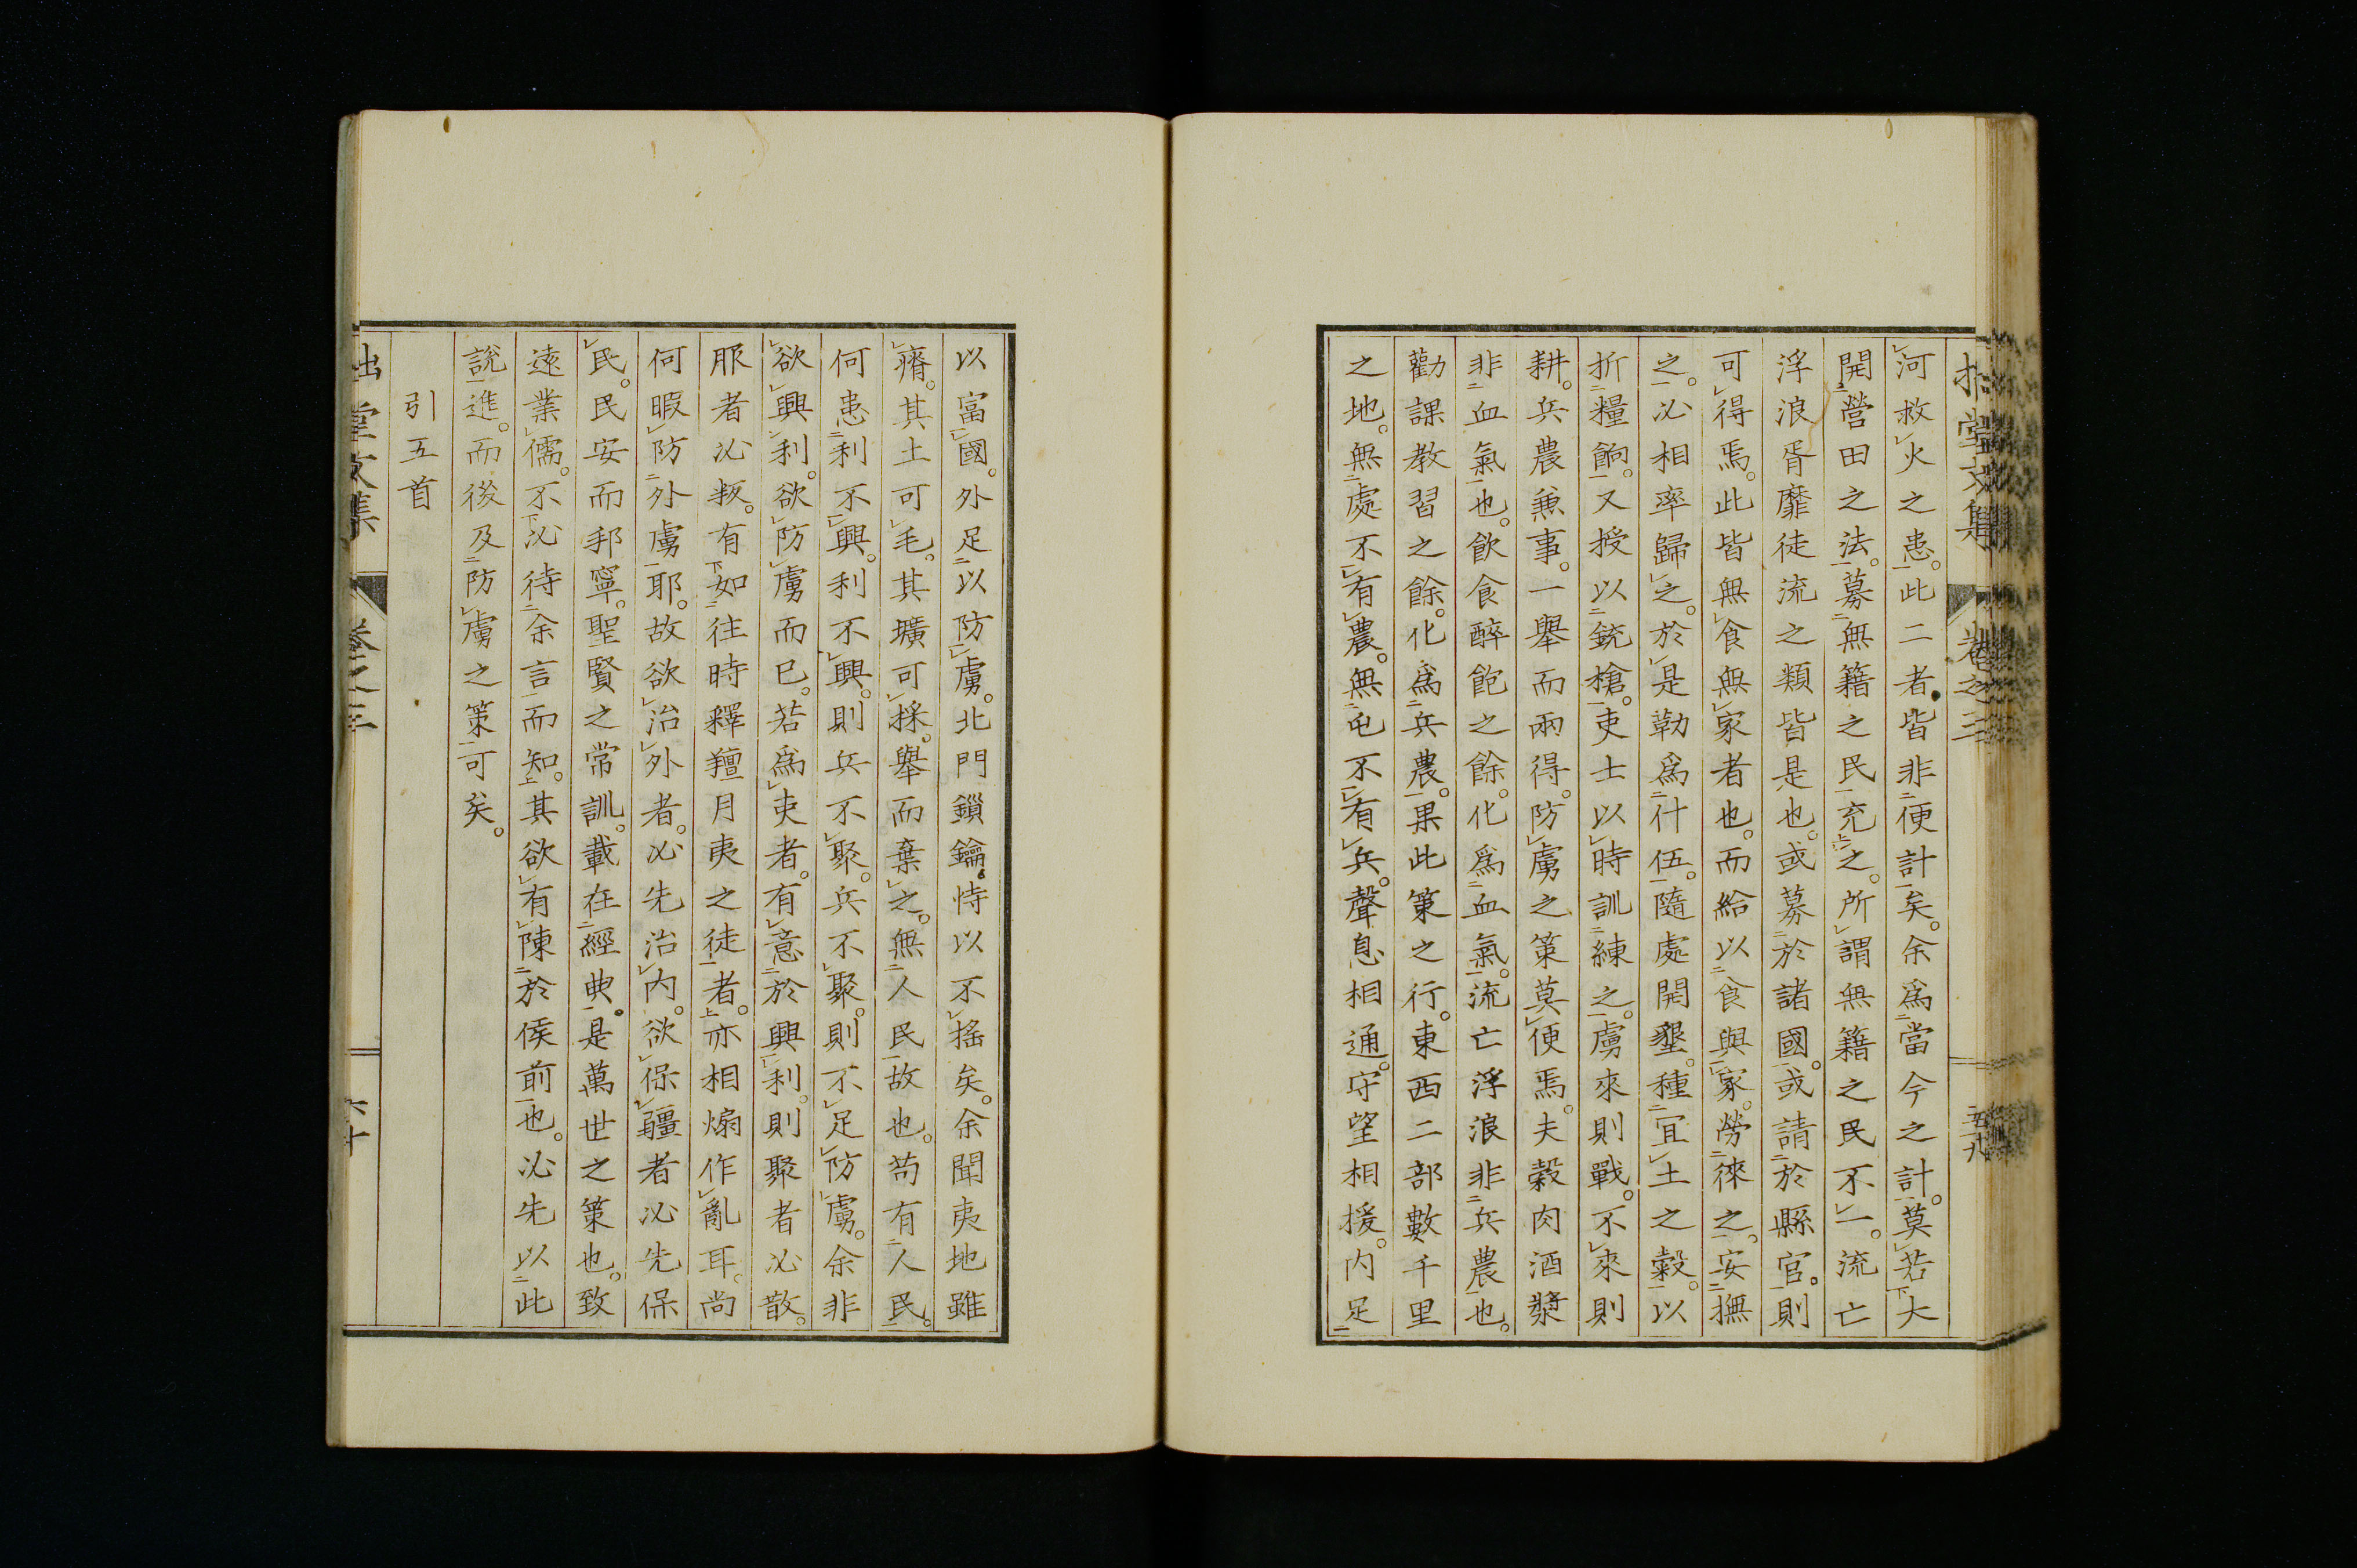 河救火之患。此二者皆非便計矣。余爲當今之計。莫若大
開營田之法。募無籍之民充之。所謂無籍之民不一。流亡
浮浪胥靡徒流之類皆是也。或募於諸國。或請於縣官。則
可得焉。此皆無食無家者也。而給以食與家。勞徠之。安撫
之。必相率歸之。於是勒爲什伍。隨處開墾。種宜土之穀。以
折糧餉。又授以銃槍。吏士以時訓練之。虜來則戰。不來則
耕。兵農兼事。一舉而兩得。防虜之策莫便焉。夫穀肉酒漿
非血氣也。飲食醉飽之餘。化爲血氣。流亡浮浪非兵農也。
勸課教習之餘。化爲兵農。果此策之行。東西二部數千里
之地。無處不有農。無屯不有兵。聲息相通。守望相援。内足
以富國。外足以防虜。北門鎖鑰。恃以不搖矣。余聞夷地雖
瘠。其土可毛。其壙可採。舉而棄之。無人民故也。苟有人民。
何患利不興。利不興。則兵不聚。兵不聚。則不足防虜。余非
欲興利。欲防虜而已。若爲吏者。有意於興利。則聚者必散。
服者必叛。有如往時釋羶月夷之徒者。亦相煽作亂耳。尚
何暇防外虜耶。故欲治外者。必先治内。欲保疆者必先保
民。民安而邦寧。聖賢之常訓。載在經典。是萬世之策也。致
遠業儒。不必待余言而知。其欲有陳於侯前也。必先以此
説進。而後及防虜之策可矣。
引五首
堂文集
卷之三
六十